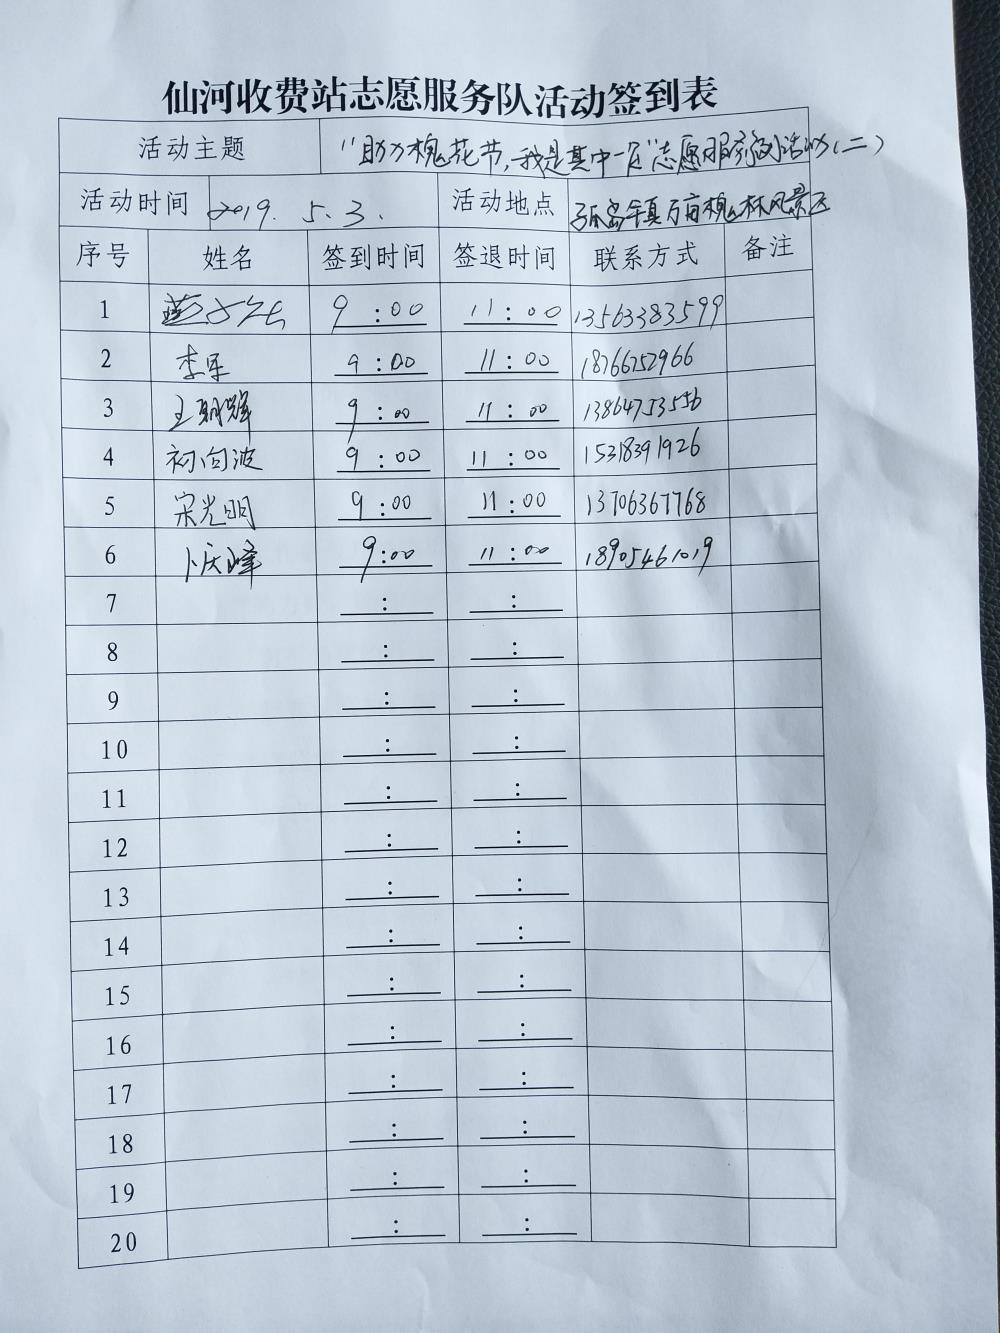 仙河收费站志愿服务队活动签到表
活动主题 "助力槐花节,我是其中一员"志愿服务系列活动(二)
活动时间 2019. 5. 3. 活动地点 孤岛镇万亩槐林风景区
序号 姓名 签到时间 签退时间 联系方式 备注
1 9:00 11:00 13563383599
2 李军 9:00 11:00 18766752966
3 王朝辉 9:00 11:00 13864753556
4 初向波 9:00 11:00 15318391926
5 宋光明 9:00 11:00 13706367768
6 卜庆峰 9:00 11:00 18905461019
7 : :
8 : :
9 : :
10 : :
11 : :
12 : :
13 : :
14 : :
15 : :
16 : :
17 : :
18 : :
19 : :
20 : :